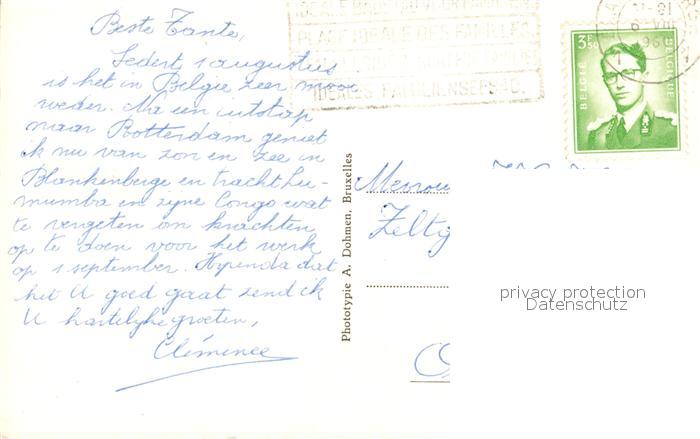 Beste Tante,
Sedert 1 augustus
is het in Belgie zeer mooi
weder. Na een uitstap
naar Rotterdam geniet
ik nu van zon en zee in
Blankenberge en tracht Lu-
mumba en zijne Congo wat
te vergeten om krachten
op te doen voor het werk
op 1 september. Hopende dat
het U goed gaat zend ik
U hartelijke groeten,
Clémence
PLAGE IDEALE DES FAMILLES
IDEALES FAMILIENSEEBAD.
3F50
BELGIE
BELGIQUE
Phototypie A. Dohmen, Bruxelles
Zeltg
privacy protection
Datenschutz